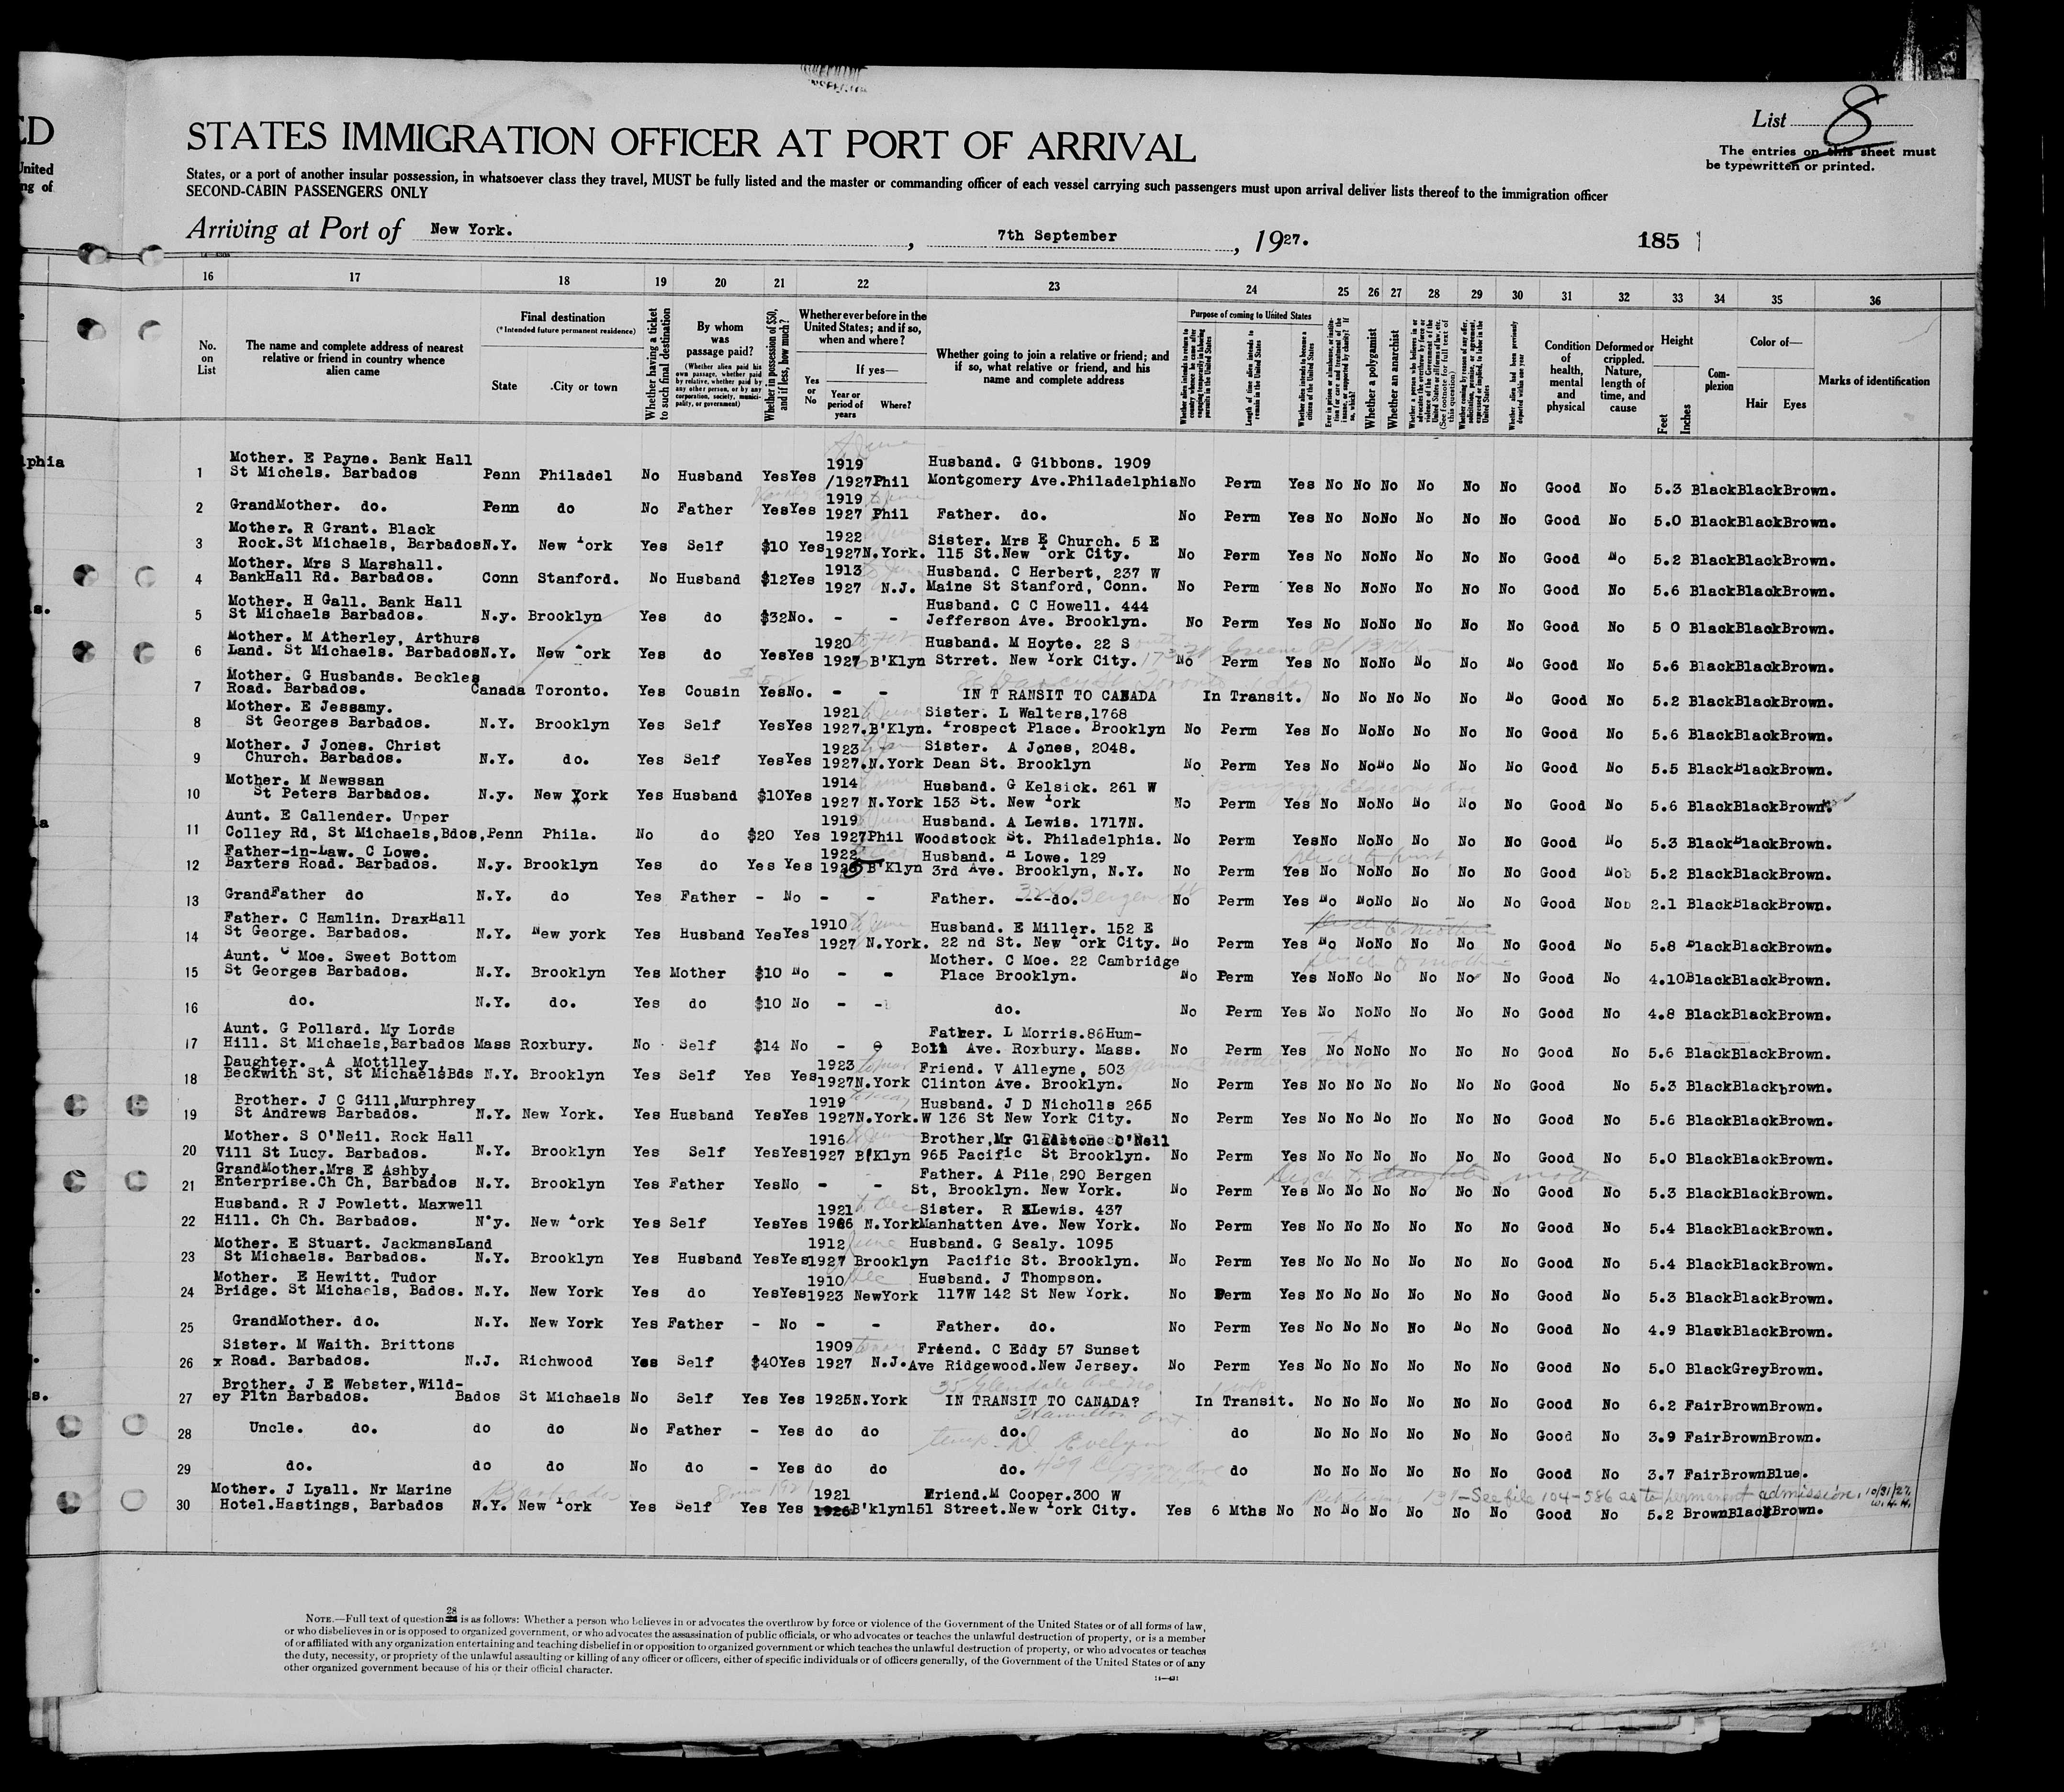 ED
United
ng of
List 8
The entries on this sheet must
be typewritten or printed.
STATES IMMIGRATION OFFICER AT PORT OF ARRIVAL
States, or a port of another insular possession, in whatsoever class they travel, MUST be fully listed and the master or commanding officer of each vessel carrying such passengers must upon arrival deliver lists thereof to the immigration officer
SECOND-CABIN PASSENGERS ONLY
Arriving at Port of New York. , 7th September , 1927.
185
16 17 18 19 20 21 22 23 24 25 26 27 28 29 30 31 32 33 34 35 36
No. on List
The name and complete address of nearest relative or friend in country whence alien came
Final destination
(*Intended future permanent residence)
State
City or town
Whether having a ticket to such final destination
By whom was passage paid?
(Whether alien paid his own passage, whether paid by relative, whether paid by any other person, or by any corporation, society, municipality, or government)
Whether in possession of $50, and if less, how much?
Whether ever before in the United States; and if so, when and where?
Yes or No
If yes—
Year or period of years
Where?
Whether going to join a relative or friend; and if so, what relative or friend, and his name and complete address
Purpose of coming to United States
Whether alien intends to return to country whence he came after engaging temporarily in laboring pursuits in the United States
Length of time alien intends to remain in the United States
Whether alien intends to become a citizen of the United States
Whether a polygamist
Whether an anarchist
Whether alien had been previously deported within one year
Condition of health, mental and physical
Deformed or crippled. Nature, length of time, and cause
Height
Feet
Inches
Complexion
Color of—
Hair
Eyes
Marks of identification
lphia
1 Mother. E Payne. Bank Hall St Michels. Barbados Penn Philadel No Husband Yes Yes 1919 /1927 Phil Husband. G Gibbons. 1909 Montgomery Ave. Philadelphia No Perm Yes No No No No No No Good No 5.3 Black Black Brown.
2 GrandMother. do. Penn do No Father Yes Yes 1919 1927 Phil Father. do. No Perm Yes No No No No No No Good No 5.0 Black Black Brown.
3 Mother. R Grant. Black Rock. St Michaels, Barbados N.Y. New York Yes Self $10 Yes 1922 1927 N.York. Sister. Mrs E Church. 5 E 115 St. New York City. No Perm Yes No No No No No No Good No 5.2 Black Black Brown.
4 Mother. Mrs S Marshall. BankHall Rd. Barbados. Conn Stanford. No Husband $12 Yes 1913 1927 N.J. Husband. C Herbert, 237 W Maine St Stanford, Conn. No Perm Yes No No No No No No Good No 5.6 Black Black Brown.
5 Mother. H Gall. Bank Hall St Michaels Barbados. N.y. Brooklyn Yes do $32 No. - - Husband. C C Howell. 444 Jefferson Ave. Brooklyn. No Perm Yes No No No No No No Good No 5 0 Black Black Brown.
6 Mother. M Atherley, Arthurs Land. St Michaels. Barbados N.Y. New York Yes do Yes Yes 1920 1927 B'Klyn Husband. M Hoyte. 22 S Strret. New York City. No Perm Yes No No No No No No Good No 5.6 Black Black Brown.
7 Mother. G Husbands. Beckles Road. Barbados. Canada Toronto. Yes Cousin Yes No. - - IN T RANSIT TO CANADA In Transit. No No No No No No Good No 5.2 Black Black Brown.
8 Mother. E Jessamy. St Georges Barbados. N.Y. Brooklyn Yes Self Yes Yes 1921 1927. B'Klyn. Sister. L Walters, 1768 Prospect Place. Brooklyn No Perm Yes No No No No No No Good No 5.6 Black Black Brown.
9 Mother. J Jones. Christ Church. Barbados. N.Y. do. Yes Self Yes Yes 1923 1927. N.York Sister. A Jones, 2048. Dean St. Brooklyn No Perm Yes No No No No No No Good No 5.5 Black Black Brown.
10 Mother. M Newssan St Peters Barbados. N.y. New York Yes Husband $10 Yes 1914 1927 N.York Husband. G Kelsick. 261 W 153 St. New York No Perm Yes No No No No No No Good No 5.6 Black Black Brown.
11 Aunt. E Callender. Upper Colley Rd, St Michaels, Bdos, Penn Phila. No do $20 Yes 1919 1927 Phil Husband. A Lewis. 1717N. Woodstock St. Philadelphia. No Perm Yes No No No No No No Good No 5.3 Black Black Brown.
12 Father-in-Law. C Lowe. Baxters Road. Barbados. N.y. Brooklyn Yes do Yes Yes 1922 1925 B'Klyn Husband. H Lowe. 129 3rd Ave. Brooklyn, N.Y. No Perm Yes No No No No No No Good No 5.2 Black Black Brown.
13 GrandFather do N.Y. do Yes Father - No - - Father. ----do. No Perm Yes No No No No No No Good No 2.1 Black Black Brown.
14 Father. C Hamlin. DraxHall St George. Barbados. N.Y. New york Yes Husband Yes Yes 1910 1927 N.York. Husband. E Miller. 152 E 22 nd St. New York City. No Perm Yes No No No No No No Good No 5.8 Black Black Brown.
15 Aunt. G Moe. Sweet Bottom St Georges Barbados. N.Y. Brooklyn Yes Mother $10 No - - Mother. C Moe. 22 Cambridge Place Brooklyn. No Perm Yes No No No No No No Good No 4.10 Black Black Brown.
16 do. N.Y. do. Yes do $10 No - - do. No Perm Yes No No No No No No Good No 4.8 Black Black Brown.
17 Aunt. G Pollard. My Lords Hill. St Michaels, Barbados Mass Roxbury. No Self $14 No - - Father. L Morris. 86 Hum- Boll Ave. Roxbury. Mass. No Perm Yes No No No No No No Good No 5.6 Black Black Brown.
18 Daughter. A Mottlley, Beckwith St, St Michaels Bds N.Y. Brooklyn Yes Self Yes Yes 1923 1927 N.York Friend. V Alleyne, 503 Clinton Ave. Brooklyn. No Perm Yes No No No No No No Good No 5.3 Black Black brown.
19 Brother. J C Gill, Murphrey St Andrews Barbados. N.Y. New York. Yes Husband Yes Yes 1919 1927 N.York. Husband. J D Nicholls 265 W 136 St New York City. No Perm Yes No No No No No No Good No 5.6 Black Black Brown.
20 Mother. S O'Neil. Rock Hall Vill St Lucy. Barbados. N.Y. Brooklyn Yes Self Yes Yes 1916 1927 B'Klyn Brother, Mr Gladstone O'Neil 965 Pacific St Brooklyn. No Perm Yes No No No No No No Good No 5.0 Black Black Brown.
21 GrandMother. Mrs E Ashby, Enterprise. Ch Ch, Barbados N.Y. Brooklyn Yes Father Yes No - - Father. A Pile, 290 Bergen St, Brooklyn. New York. No Perm Yes No No No No No No Good No 5.3 Black Black Brown.
22 Husband. R J Powlett. Maxwell Hill. Ch Ch. Barbados. N'y. New York Yes Self Yes Yes 1921 1926 N.York Sister. R Lewis. 437 Manhatten Ave. New York. No Perm Yes No No No No No No Good No 5.4 Black Black Brown.
23 Mother. E Stuart. JackmansLand St Michaels. Barbados. N.Y. Brooklyn Yes Husband Yes Yes 1912 1927 Brooklyn Husband. G Sealy. 1095 Pacific St. Brooklyn. No Perm Yes No No No No No No Good No 5.4 Black Black Brown.
24 Mother. E Hewitt. Tudor Bridge. St Michaels, Bados. N.Y. New York Yes do Yes Yes 1910 1923 NewYork Husband. J Thompson. 117W 142 St New York. No Perm Yes No No No No No No Good No 5.3 Black Black Brown.
25 GrandMother. do. N.Y. New York Yes Father - No - - Father. do. No Perm Yes No No No No No No Good No 4.9 Black Black Brown.
26 Sister. M Waith. Brittons x Road. Barbados. N.J. Richwood Yes Self $40 Yes 1909 1927 N.J. Friend. C Eddy 57 Sunset Ave Ridgewood. New Jersey. No Perm Yes No No No No No No Good No 5.0 Black Grey Brown.
27 Brother. J E Webster, Wild- ey Pltn Barbados. Bados St Michaels No Self Yes Yes 1925 N.York IN TRANSIT TO CANADA? In Transit. No No No No No No Good No 6.2 Fair Brown Brown.
28 Uncle. do. do do No Father - Yes do do do. do No No No No No No Good No 3.9 Fair Brown Brown.
29 do. do do No do - Yes do do do. do No No No No No No Good No 3.7 Fair Brown Blue.
30 Mother. J Lyall. Nr Marine Hotel. Hastings, Barbados N.Y. New York Yes Self Yes Yes 1921 1926 B'klyn Friend. M Cooper. 300 W 151 Street. New York City. Yes 6 Mths No No No No No No No Good No 5.2 Brown Black Brown.
See file 104-586 as to permanent admission. 10/31/27. W.H.H.
NOTE.—Full text of question 28 is as follows: Whether a person who believes in or advocates the overthrow by force or violence of the Government of the United States or of all forms of law,
or who disbelieves in or is opposed to organized government, or who advocates the assassination of public officials, or who advocates or teaches the unlawful destruction of property, or is a member
of or affiliated with any organization entertaining and teaching disbelief in or opposition to organized government or which teaches the unlawful destruction of property, or who advocates or teaches
the duty, necessity, or propriety of the unlawful assaulting or killing of any officer or officers, either of specific individuals or of officers generally, of the Government of the United States or of any
other organized government because of his or their official character.